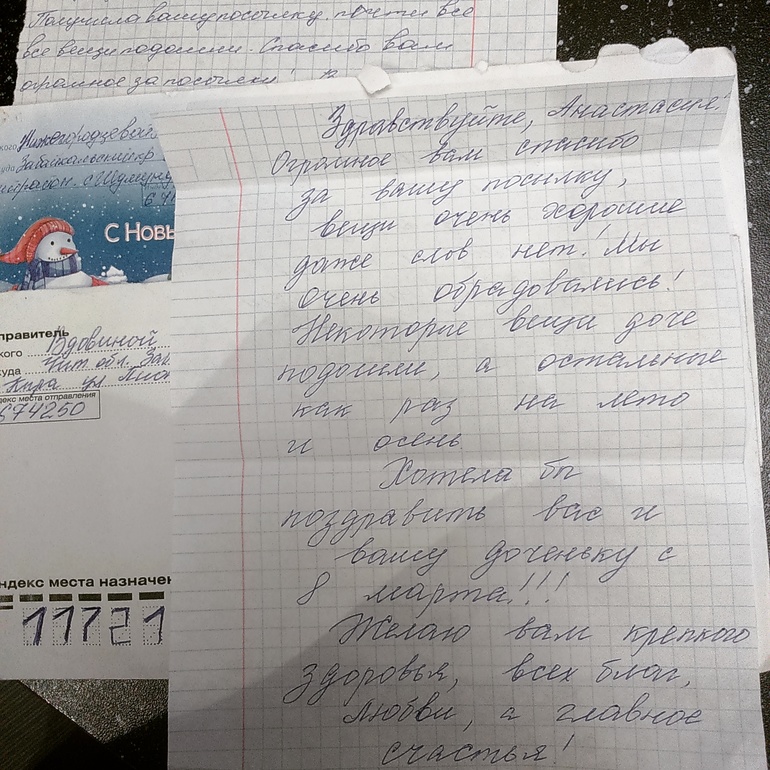 Получила вашу посылку. почти все
все вещи подошли. Спасибо вам
огромное за посылки!
Здравствуйте, Анастасия!
Огромное вам спасибо
за вашу посылку,
вещи очень хорошие
даже слов нет! Мы
очень обрадовались!
Некоторые вещи доче
подошли, а остальные
как раз на лето
и осень.
Хотела бы
поздравить вас и
вашу доченьку с
8 марта!!!
Желаю вам крепкого
здоровья, всех благ,
любви, а главное
счастья!
кого Нижегородзевой
куда Забайкальский кр
С Новы
правитель
кого Вдовиной
куда Чит. обл.
Кыра ул
декс места отправления
674250
ндекс места назначен
11721